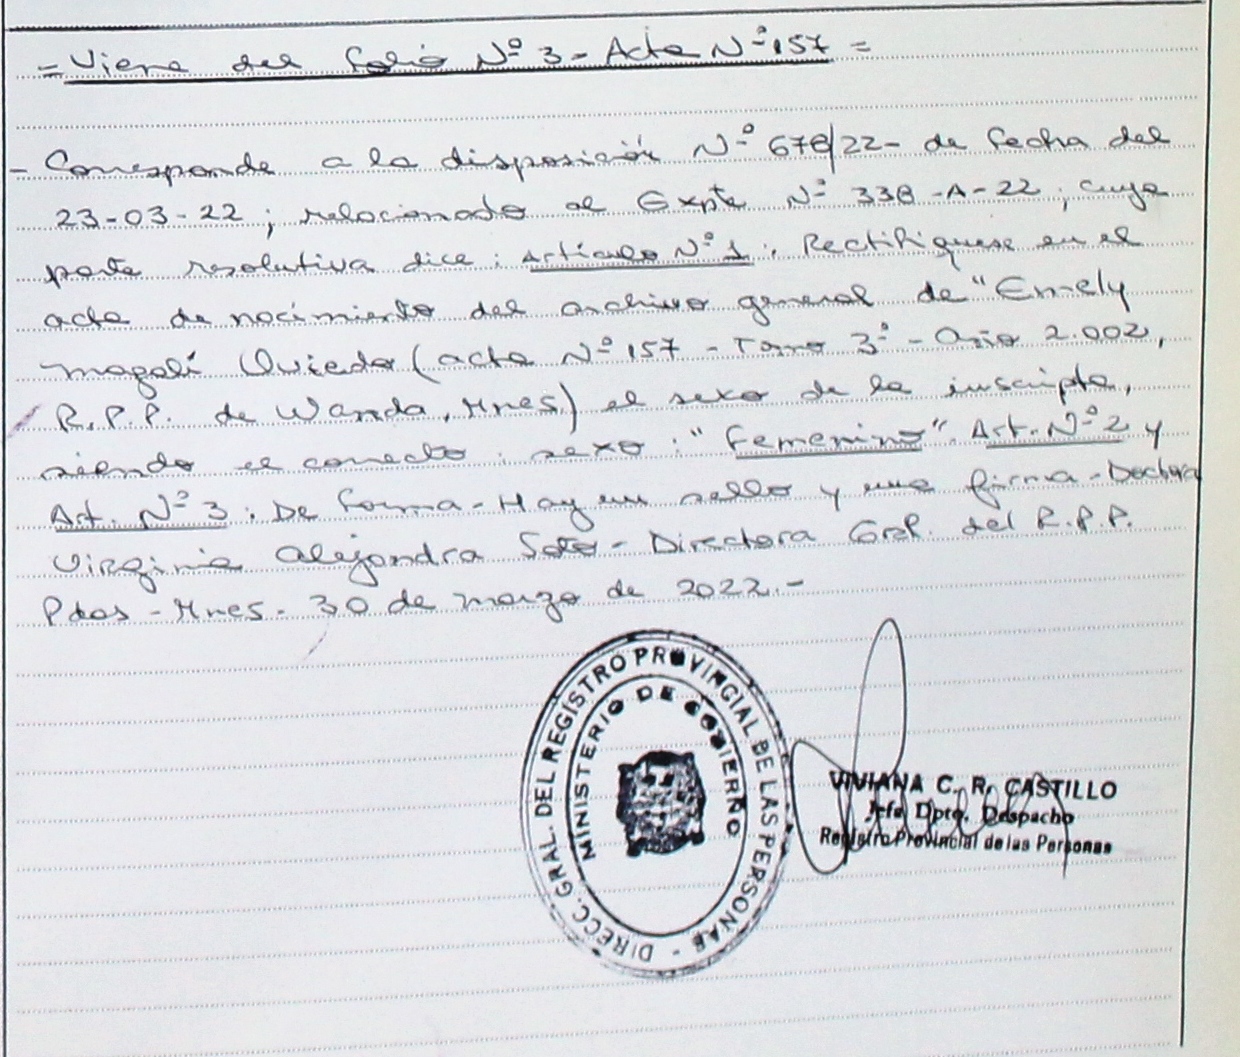 = Viene del folio Nº 3 - Acta Nº 157 =
- Corresponde a la disposición Nº 678/22 - de fecha del
23-03-22; relacionado al Expte Nº 338-A-22; cuya
parte resolutiva dice: Artículo Nº 1: Rectifíquese en el
acta de nacimiento del archivo general de "Emely
Magalí Oviedo (acta Nº 157 - Tomo 3º - Año 2.002,
R.P.P. de Wanda, Mnes.) el sexo de la inscripta,
siendo el correcto: sexo: "Femenino". Art. Nº 2 y
Art. Nº 3: De forma - Hay un sello y una firma - Doctora
Virginia Alejandra Soto - Directora Gral. del R.P.P.
Pdas - Mnes. 30 de marzo de 2022.-
DIRECC. GRAL. DEL REGISTRO PROVINCIAL DE LAS PERSONAS -
MINISTERIO DE GOBIERNO
VIVIANA C. R. CASTILLO
Jefa Dpto. Despacho
Registro Provincial de las Personas